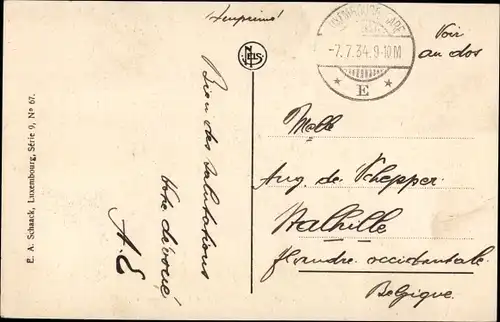 Imprimé
LUXEMBOURG-GARE
-7.7.34.9-10M
* E *
Voir
au dos
NELS
E. A. Schaack, Luxembourg, Série 9, Nº 67.
Bien des salutations
Votre dévoué
A. E
Melle
Aug. de Schepper
Stalhille
flandre occidentale
Belgique.